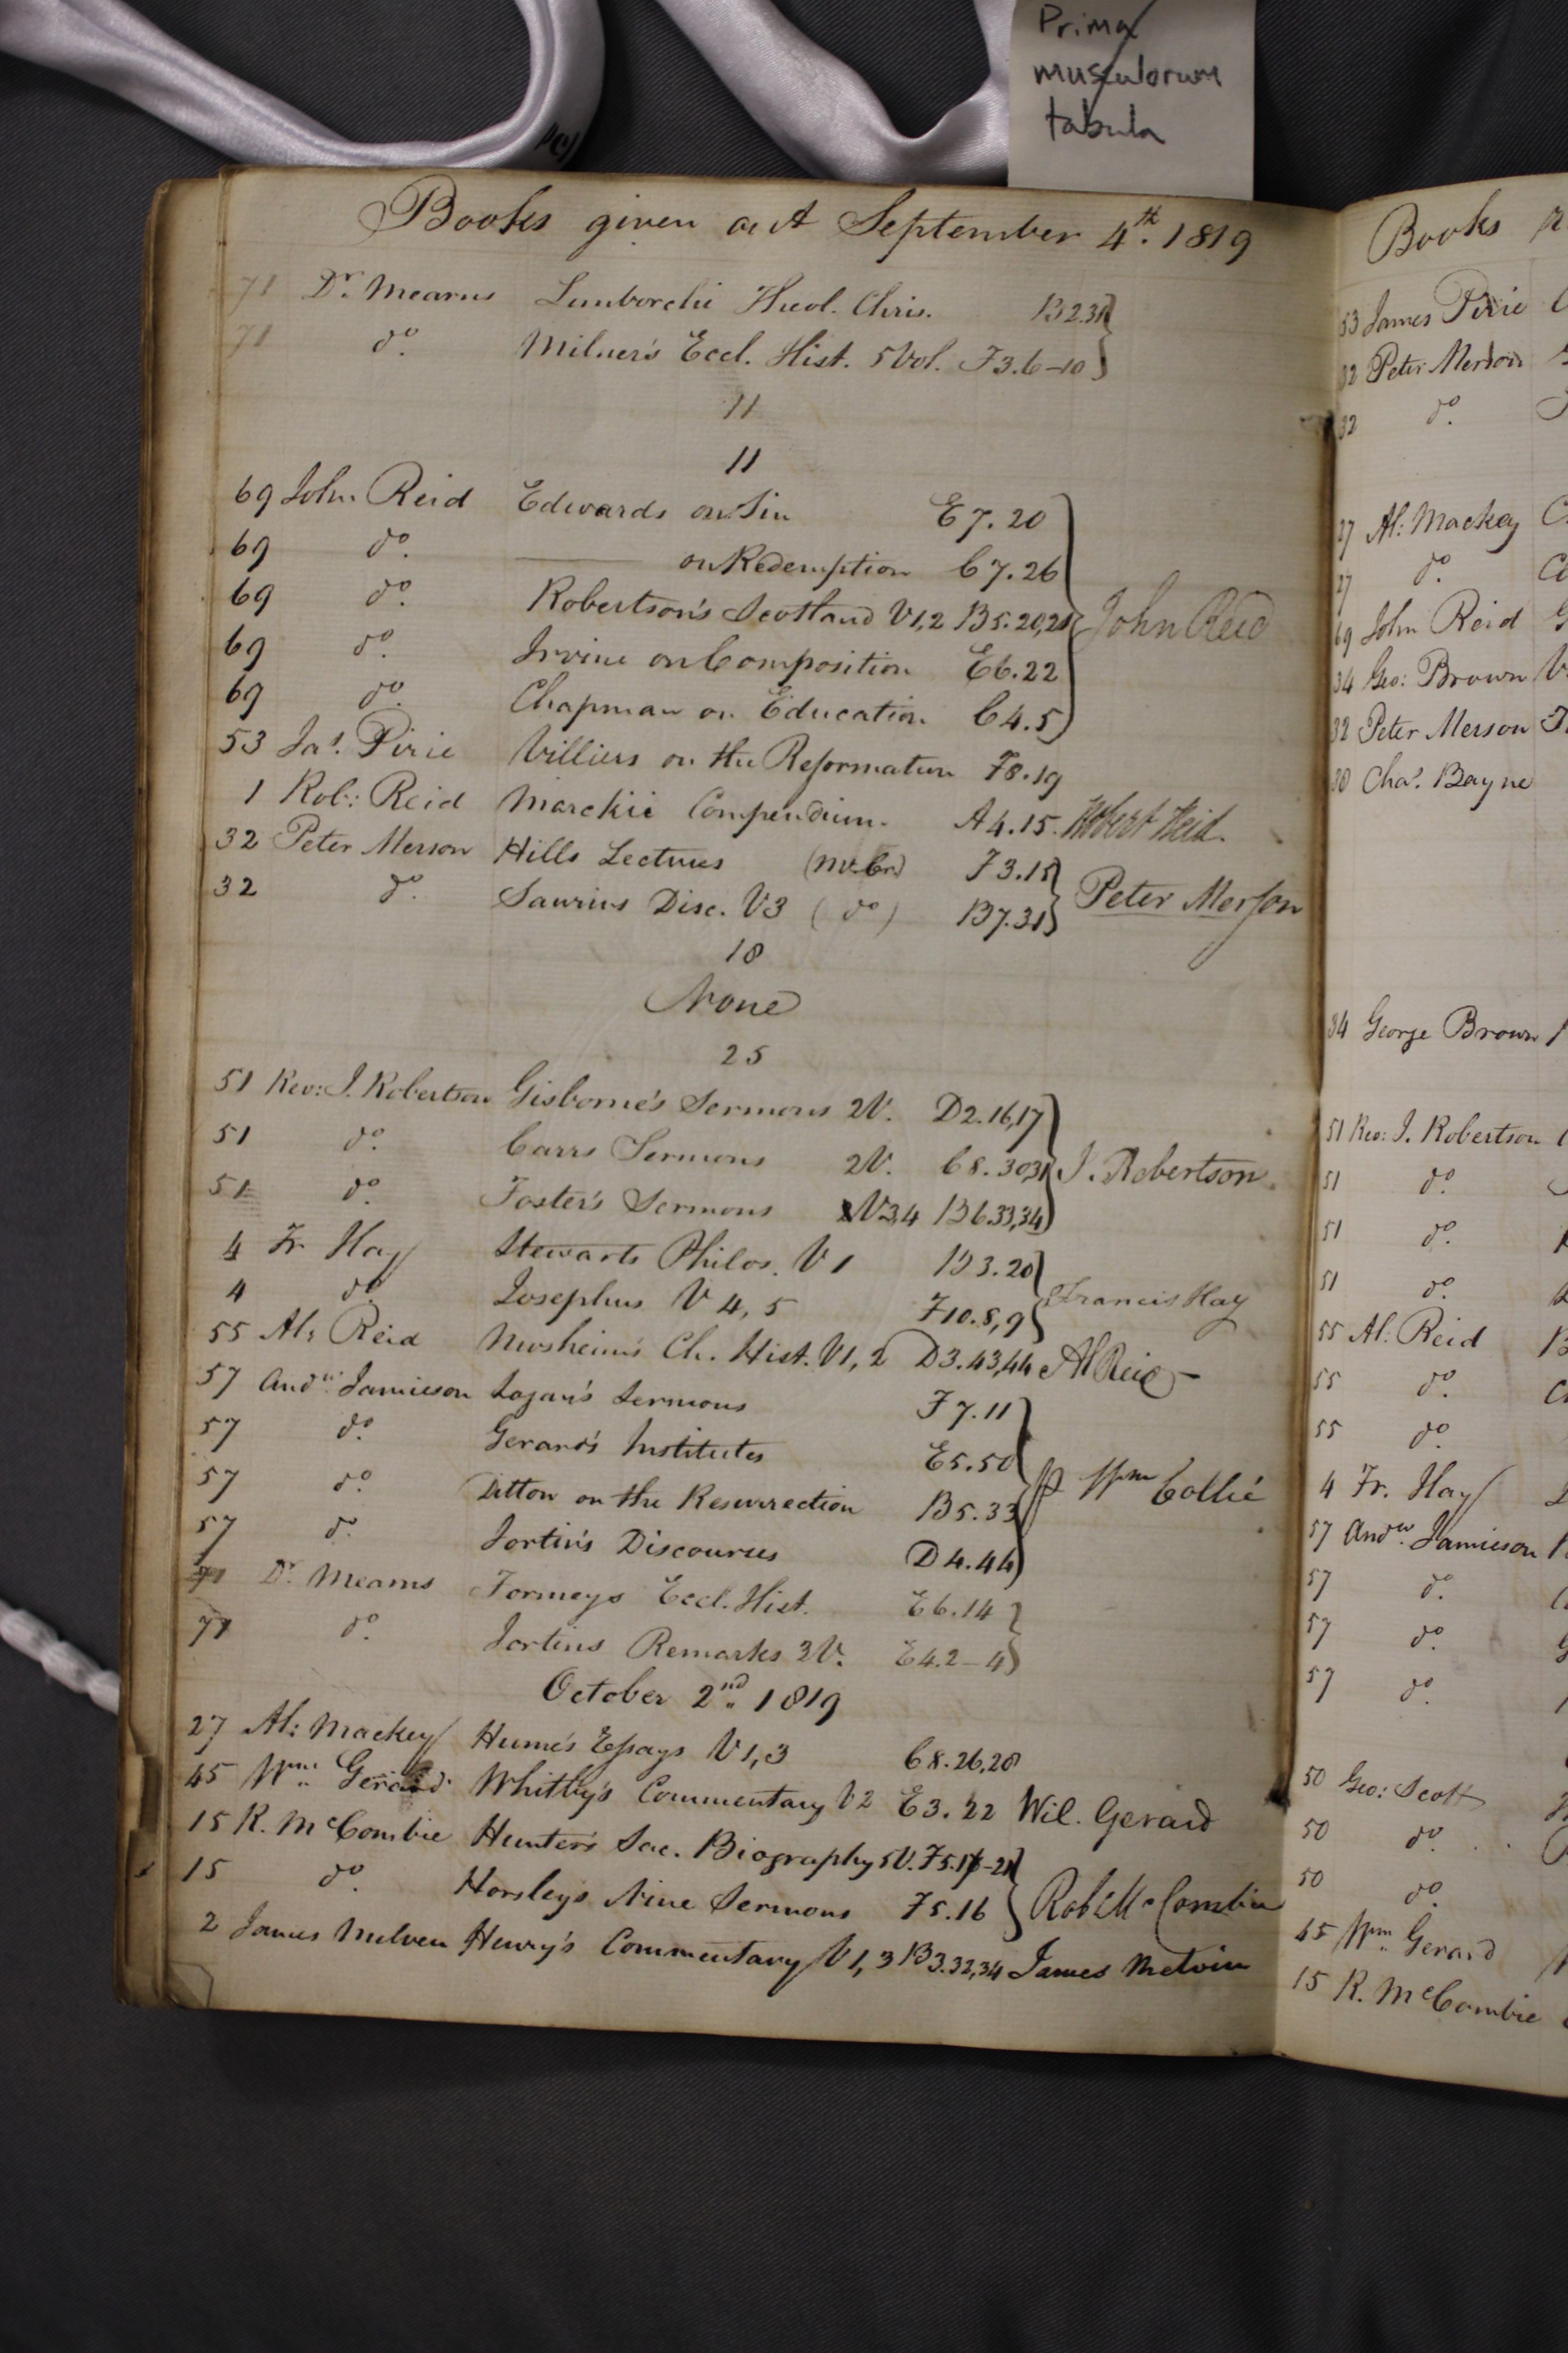 Prima
musculorum
tabula
Books given out September 4th. 1819
71 Dr. Mearns Limborchi Theol. Chris. B2.31
71 do. Milner's Eccl. Hist. 5 Vol. F3.6-10
11
11
69 John Reid Edwards on Sin E7.20
69 do. ——— on Redemption C7.26
69 do. Robertson's Scotland V1,2 B5.20,21 John Reid
69 do. Irvine on Composition E6.22
69 do. Chapman on Education C4.5
53 Jas. Pirie Villiers on the Reformation F8.19
1 Rob: Reid Marckii Compendium. A4.15. Robert Reid.
32 Peter Merson Hills Lectures F3.15
32 do. Saurins Disc. V3 (do) B7.31 Peter Merson
18
None
25
51 Rev: J. Robertson Gisborne's Sermons 2V. D2.16,17
51 do. Carrs Sermons 2V. C8.30,31 J. Robertson
51 do. Foster's Sermons V3,4 B6.33,34
4 Fr Hay Stewarts Philos. V1 B3.20
4 do. Josephus V4,5 F10.8,9 Francis Hay
55 Al: Reid Mosheim's Ch. Hist. V1,2 D3.43,44 Al Reid
57 Andw. Jamieson Logan's Sermons F7.11
57 do. Gerard's Institutes E5.50
57 do. Ditton on the Resurrection B5.33 p Wm Collie
57 do. Jortin's Discourses D4.44
71 Dr. Mearns Formeys Eccl. Hist. E6.14
71 do. Jortins Remarks 3V. E4.2-4
October 2nd. 1819
27 Al: Mackey Hume's Essays V1,3 C8.26,28
45 Wm. Gerard Whitby's Commentary V2 E3.22 Wil. Gerard
15 R. McCombie Hunter's Sac. Biography 5V. F5.17-21
15 do. Horsleys Nine Sermons F5.16 Robt McCombie
2 James Melven Henry's Commentary V1,3 B3.32,34 James Melvin
Books
53 James Pirie
32 Peter Merson
32 do.
27 Al: Mackey
27 do.
69 John Reid
34 Geo: Brown
32 Peter Merson
30 Chas. Bayne
34 George Brown
51 Rev: J. Robertson
51 do.
51 do.
51 do.
55 Al: Reid
55 do.
55 do.
4 Fr. Hay
57 Andw. Jamieson
57 do.
57 do.
57 do.
50 Geo: Scott
50 do.
50 do.
45 Wm. Gerard
15 R. McCombie